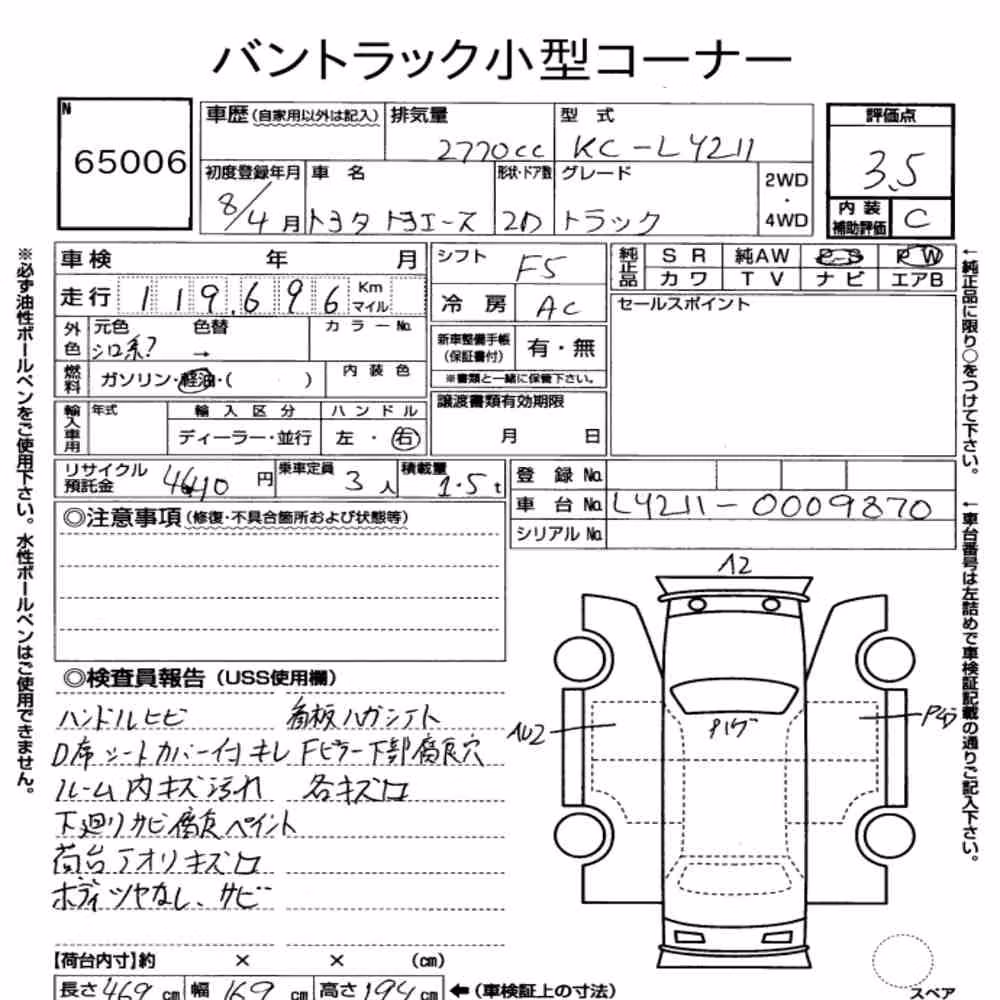 バントラック小型コーナー
N
65006
車歴 (自家用以外は記入) 排気量 2770cc 型式 KC-LY211
初度登録年月 8/4月 車名 トヨタ トヨエース 形状・ドア数 2D グレード トラック 2WD・4WD
評価点 3.5
内装補助評価 C
車検 年 月
走行 119,696 Km マイル
外色 元色 シロ系? 色替 → カラーNo.
燃料 ガソリン・軽油・( ) 内装色
輸入車用 年式 輸入区分 ハンドル
ディーラー・並行 左・右
シフト F5
冷房 AC
新車整備手帳 (保証書付) 有・無
※書類と一緒に保管下さい。
譲渡書類有効期限
月 日
純正品 SR 純AW P-S PW
カワ TV ナビ エアB
セールスポイント
リサイクル預託金 4610円 乗車定員 3人 積載量 1.5t
登録No.
車台No. LY211-0009870
シリアルNo.
◎注意事項 (修復・不具合箇所および状態等)
◎検査員報告 (USS使用欄)
ハンドルヒビ 看板ハガシアト
D席シートカバー付キレ Fピラー下部腐食穴
ルーム内キズ汚れ 各キズ凹
下廻りサビ腐食ペイント
荷台アオリキズ凹
ボディツヤなし、サビ
A2
【荷台内寸】約 × × (cm)
長さ 469 cm 幅 169 cm 高さ 194 cm ←(車検証上の寸法)
スペア
※必ず油性ボールペンをご使用下さい。水性ボールペンはご使用できません。
←純正品に限り○をつけて下さい。
←車台番号は左詰めで車検証記載の通りご記入下さい。